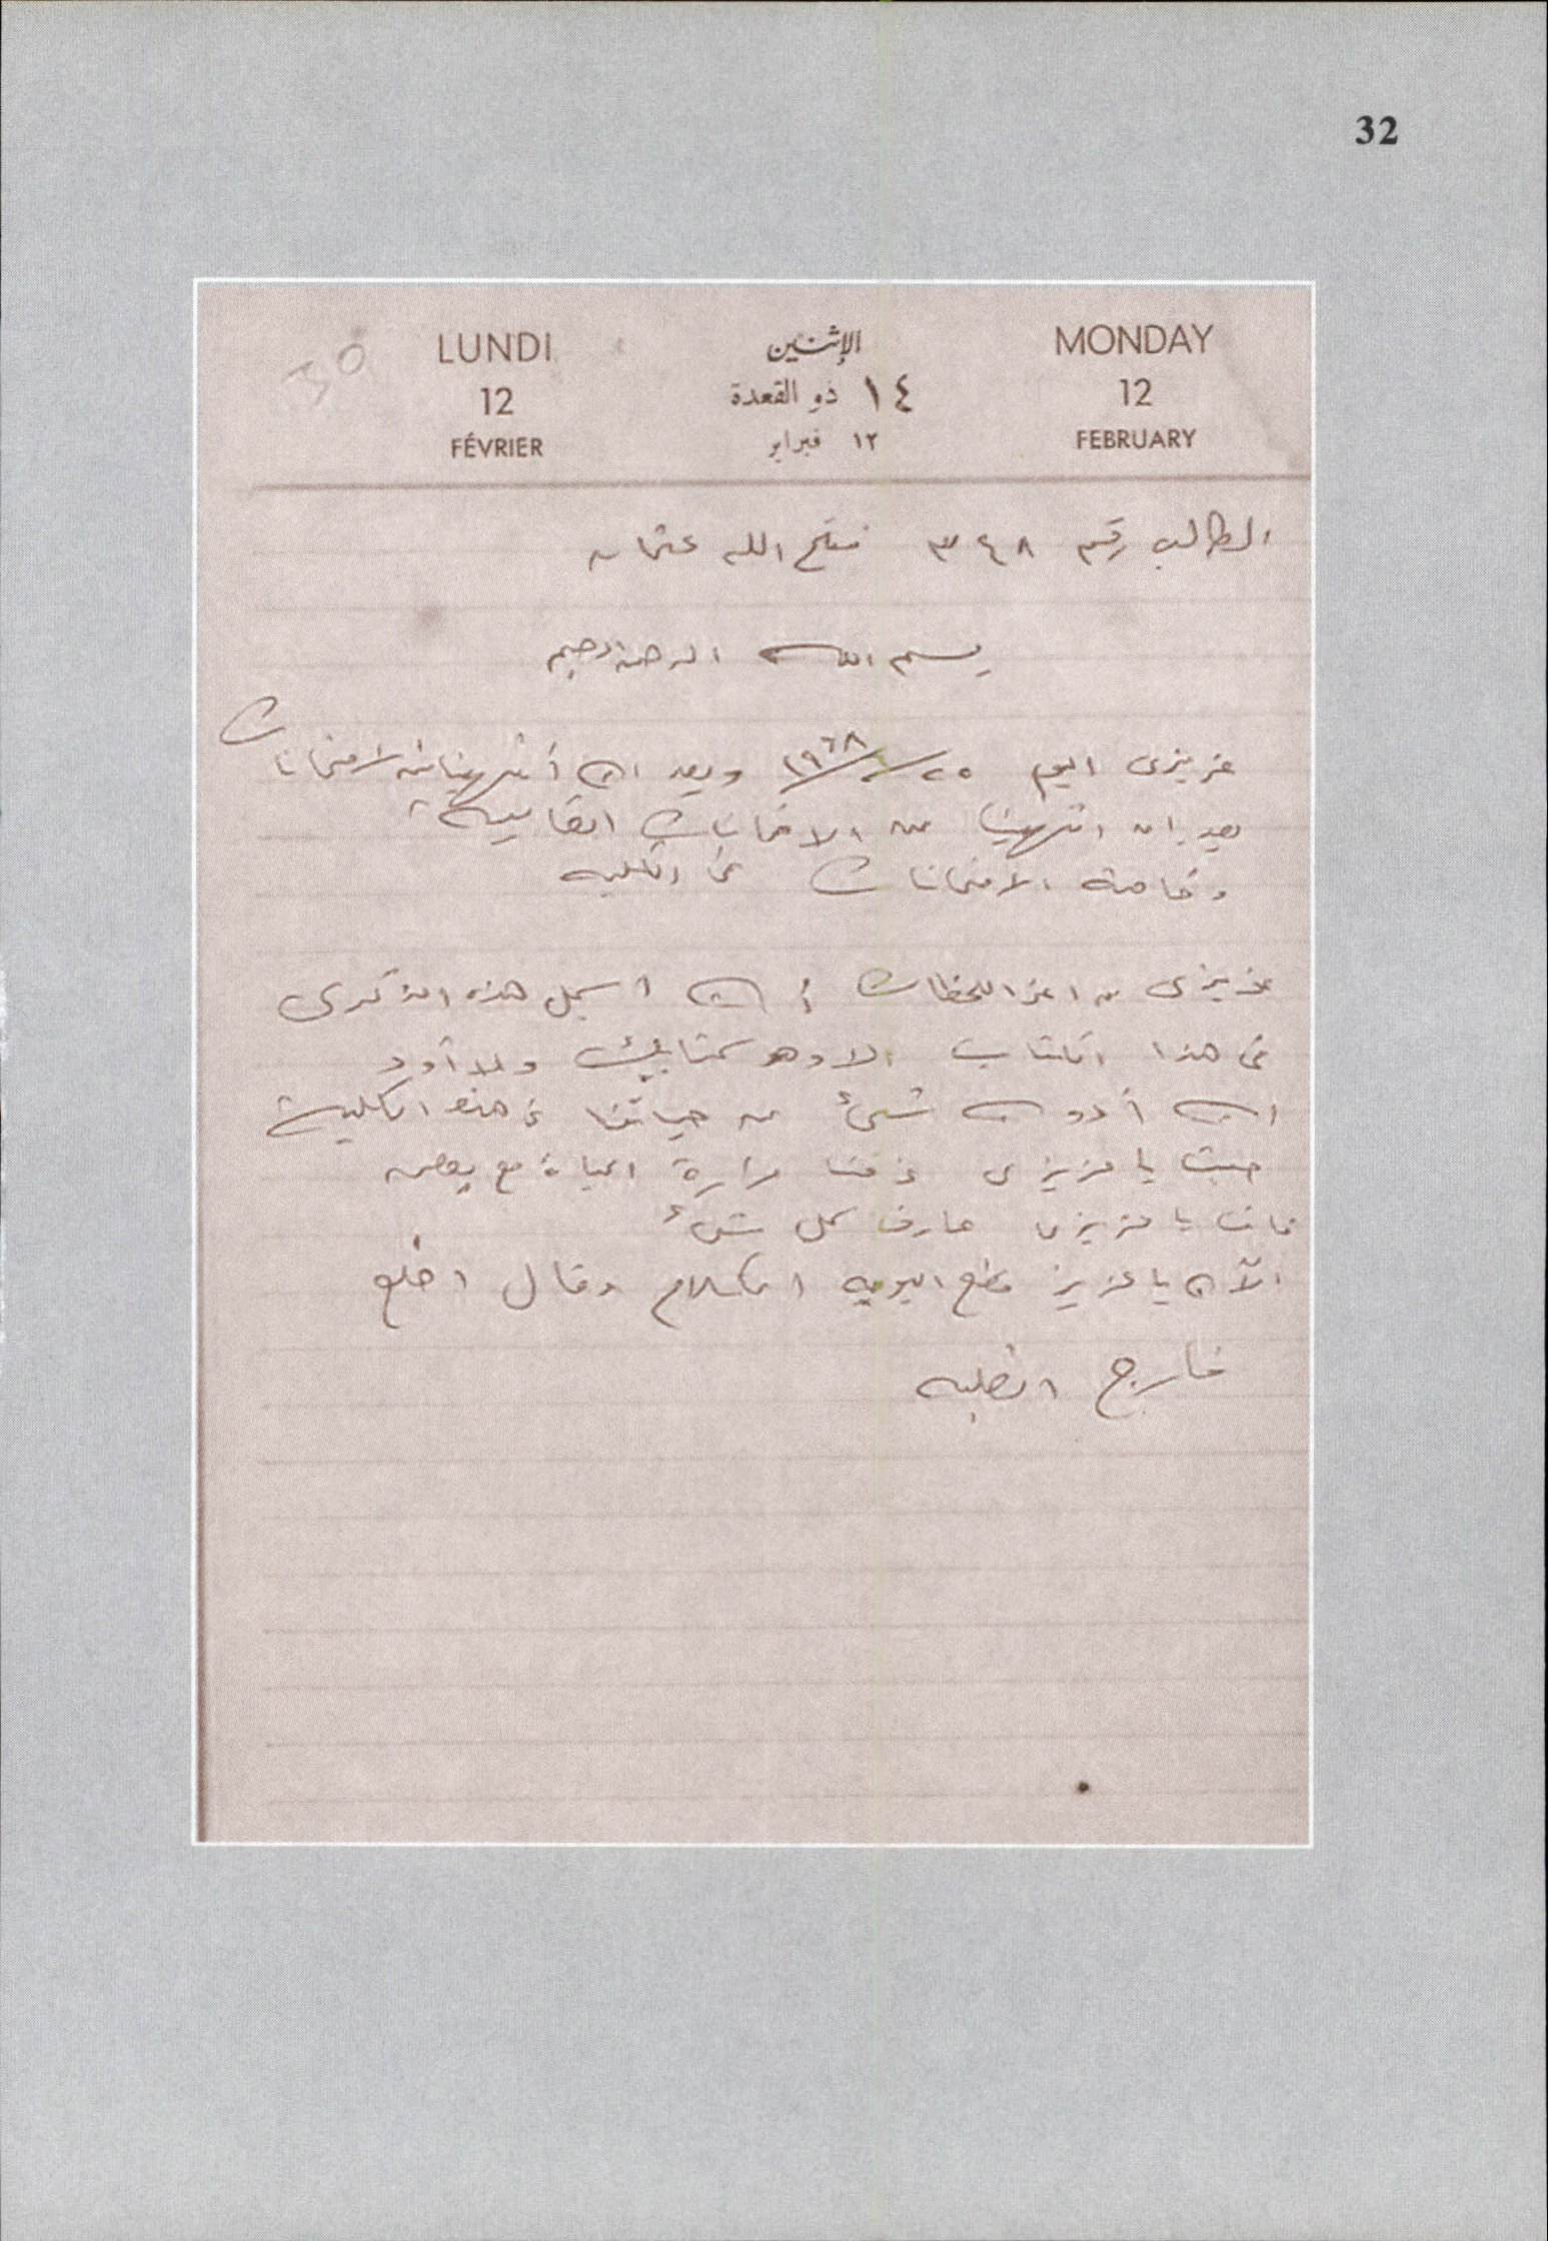 32
LUNDI الإثنين MONDAY
12 ١٤ ذو القعدة 12
FÉVRIER ١٢ فبراير FEBRUARY
الطالب رقم ٣٤٨ فتح الله عثمان
بسم الله الرحمن الرحيم
عزيزى اليوم ١٩٦٨ وبعد ان أنتهينا من الامتحانات
بعد ان انتهينا من الامتحانات القاسية
وخاصة الامتحانات فى الكليه
عزيزى من اعز اللحظات أن اسجل هذه الذكرى
فى هذا الكتاب الا وهو كتابك ولا أود
ان أدون شىء من حياتنا فى هذه الكلية
حيث يا عزيزى ذقنا مرارة الحياة مع بعض
فانت يا عزيزى عارف كل شىء
الآن يا عزيز السلام وقال اطلع
خارج